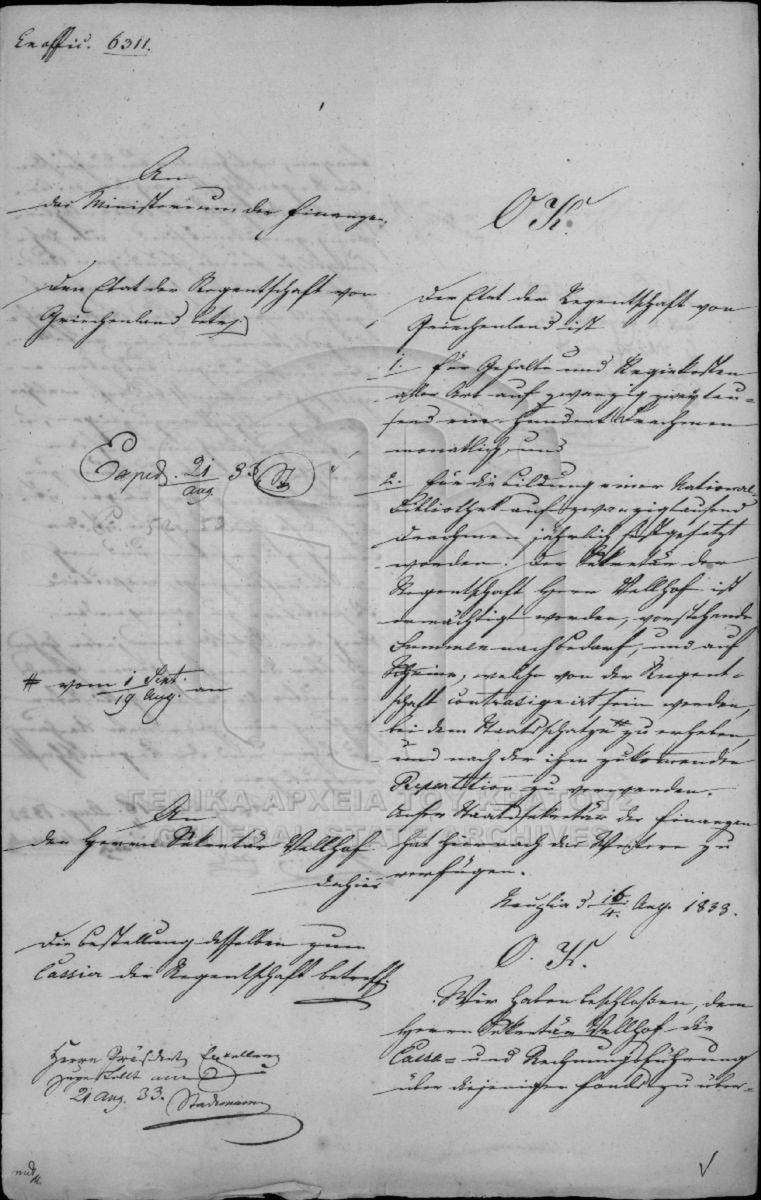 Ex offic. 6311.
An
das Ministerium der Finanzen.
Den Etat der Regentschaft von
Griechenland betr.
Exped. 21 Aug. 33
# vom 1 Sept. / 19 Aug. an
An
den Herrn Sekretär Vellhof
dahier
Die Bestellung desselben zum
Cassier der Regentschaft betreff.
Herrn Präsident Excellenz
zugestellt am
21 Aug. 33. Stademann
O K.
Der Etat der Regentschaft von
Griechenland ist
1. für Gehalte und Regiekosten
aller Art auf zwanzig zwey tau-
send ein hundert Drachmen
monatlich, und
2. für die Bildung einer National-
Bibliothek auf zwanzigtausend
Drachmen jährlich festgesetzt
worden. Der Sekretär der
Regentschaft Herr Vellhof ist
ermächtigt worden, vorstehende
Summen nach Bedarf, und auf
Scheine, welche von der Regent-
schaft contrasignirt sein werden,
bei dem Staatsschatze # zu erheben,
und nach der ihm zukommenden
Repartition zu verwenden.
Unser Staatssekretär der Finanzen
hat hiernach das Weitere zu
verfügen.
Nauplia d 16/4. Aug. 1833.
O. K.
Wir haben beschloßen, dem
Herrn Sekretär Vellhof die
Cassa- und Rechnungsführung
über diejenigen Fonds zu über-
ΓΕΝΙΚΑ ΑΡΧΕΙΑ ΤΟΥ ΚΡΑΤΟΥΣ
GENERAL STATE ARCHIVES